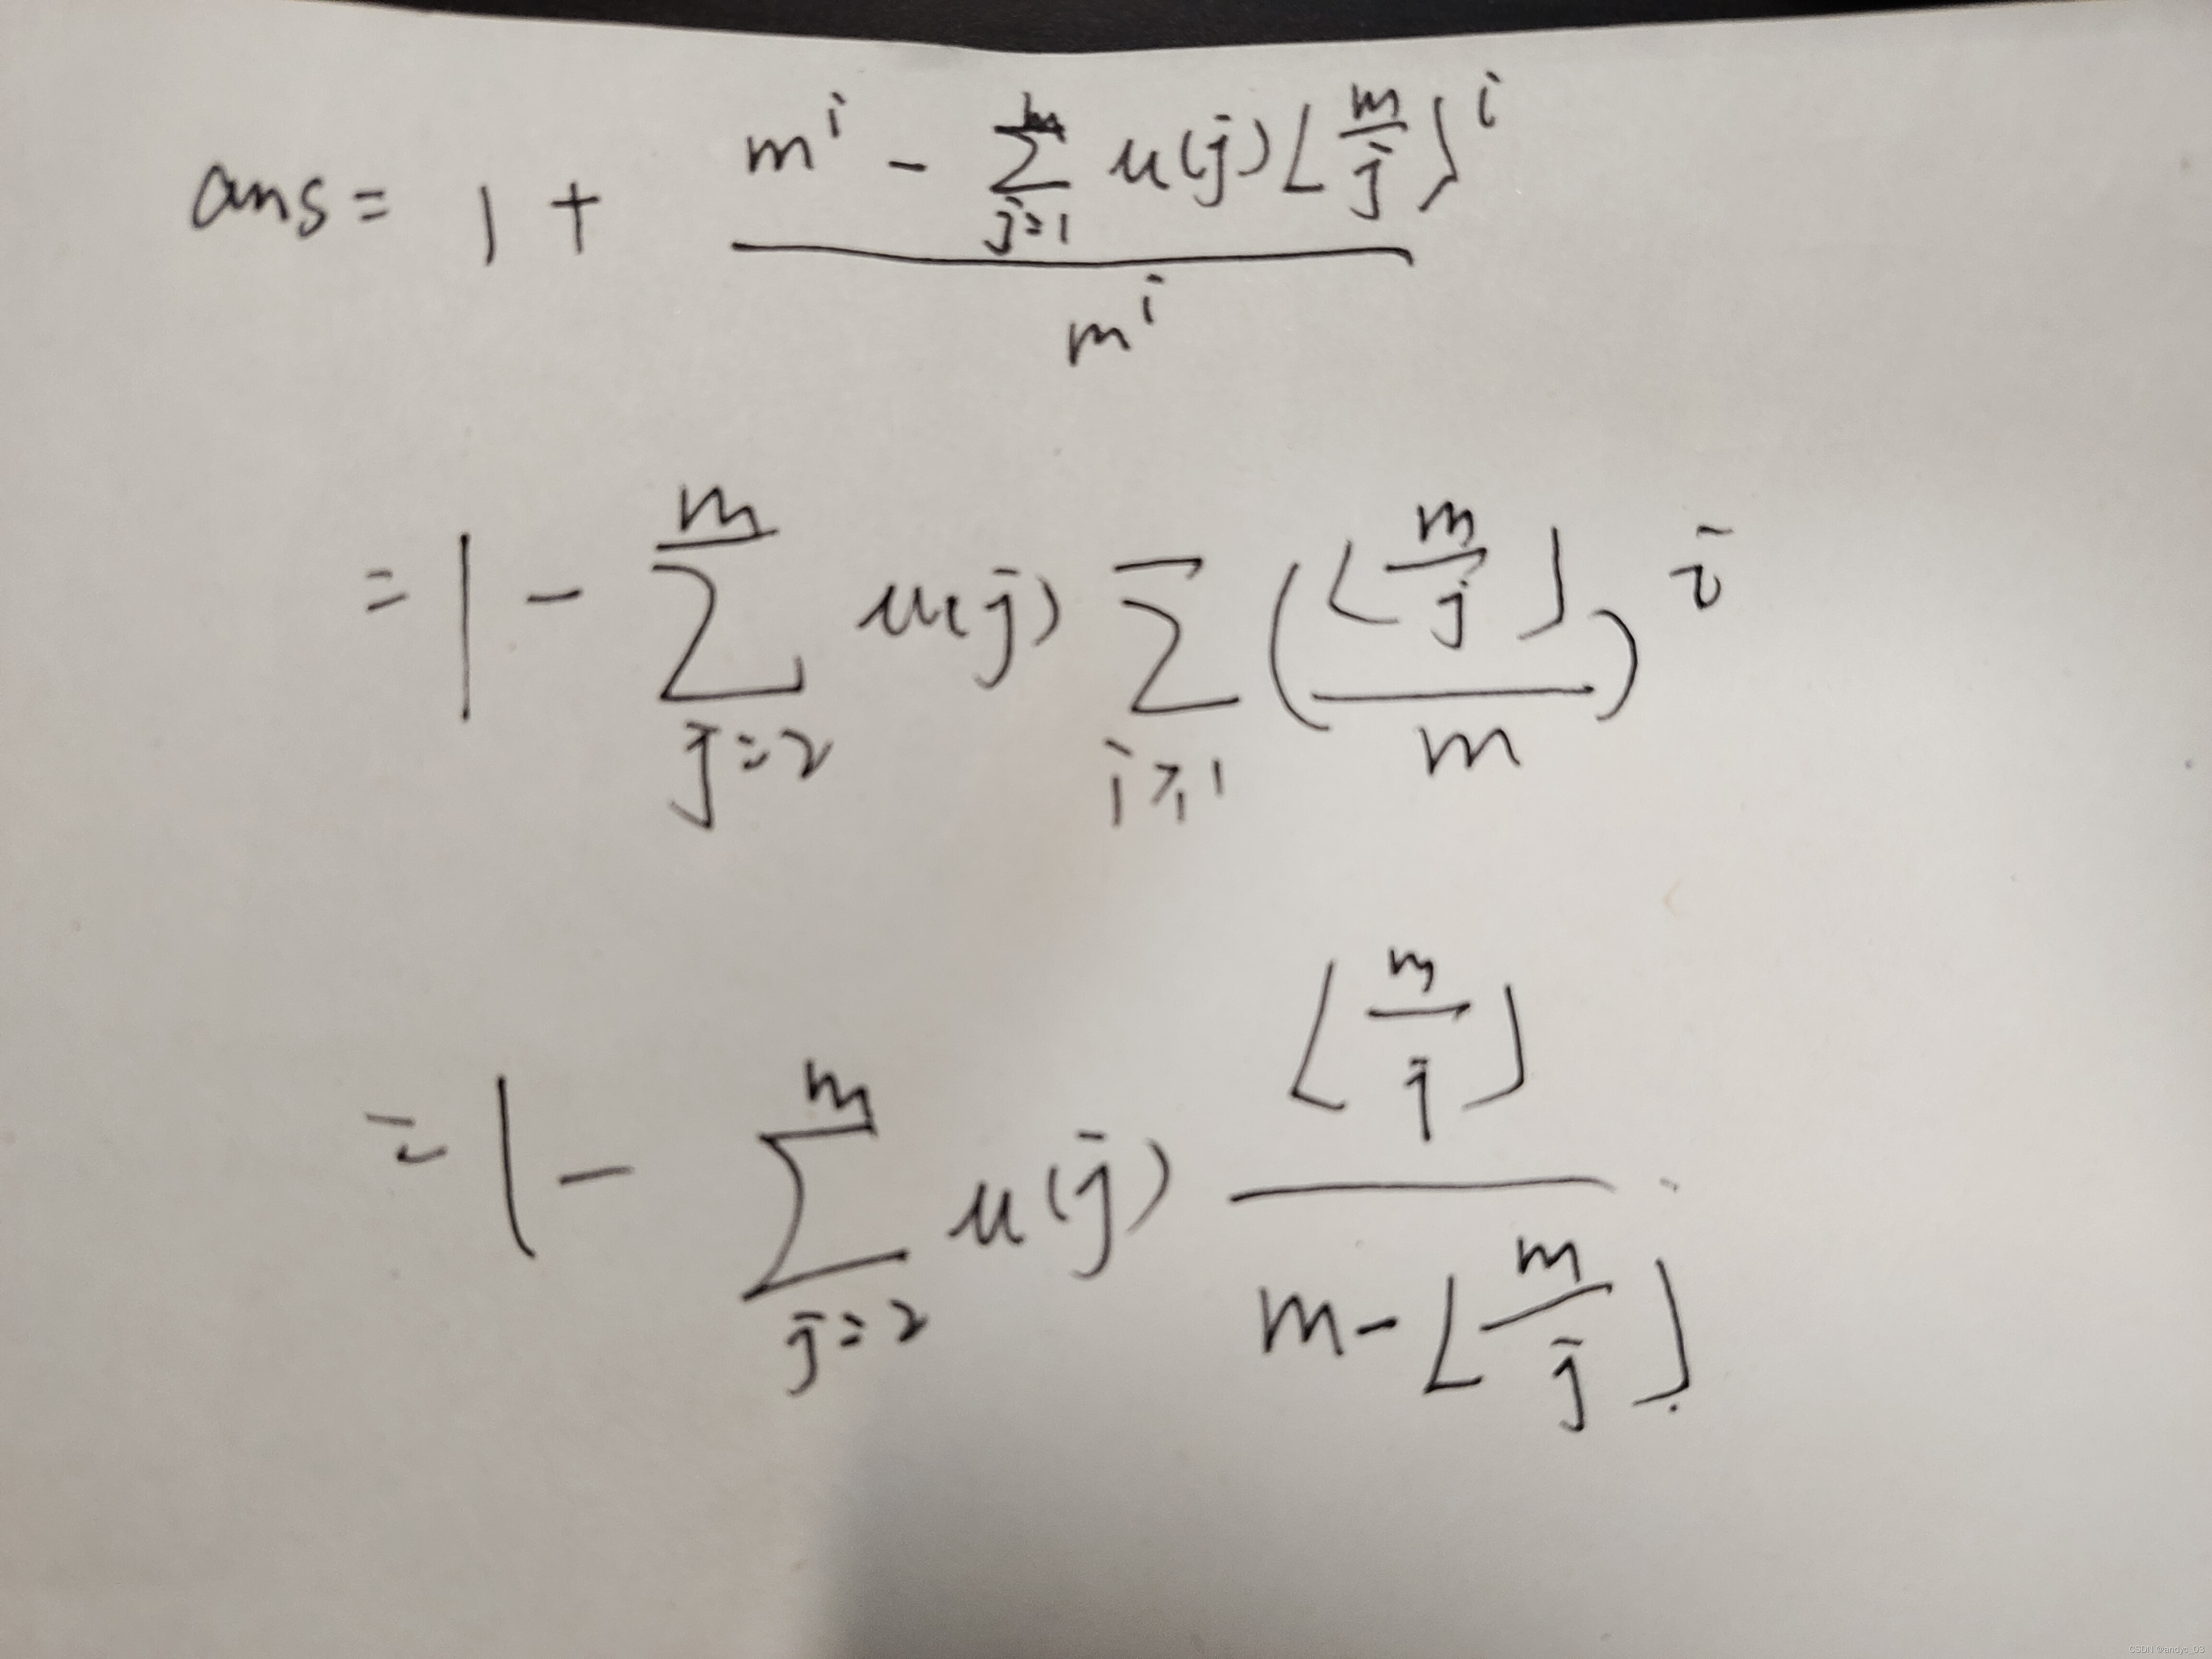 ans = 1 + \frac{m^i - \sum_{j=1}^{m} u(j) \lfloor \frac{m}{j} \rfloor^i}{m^i}
= 1 - \sum_{j=2}^{m} u(j) \sum_{i \geq 1} \left( \frac{\lfloor \frac{m}{j} \rfloor}{m} \right)^i
= 1 - \sum_{j=2}^{m} u(j) \frac{\lfloor \frac{m}{j} \rfloor}{m - \lfloor \frac{m}{j} \rfloor}.
CSDN @andyc_03